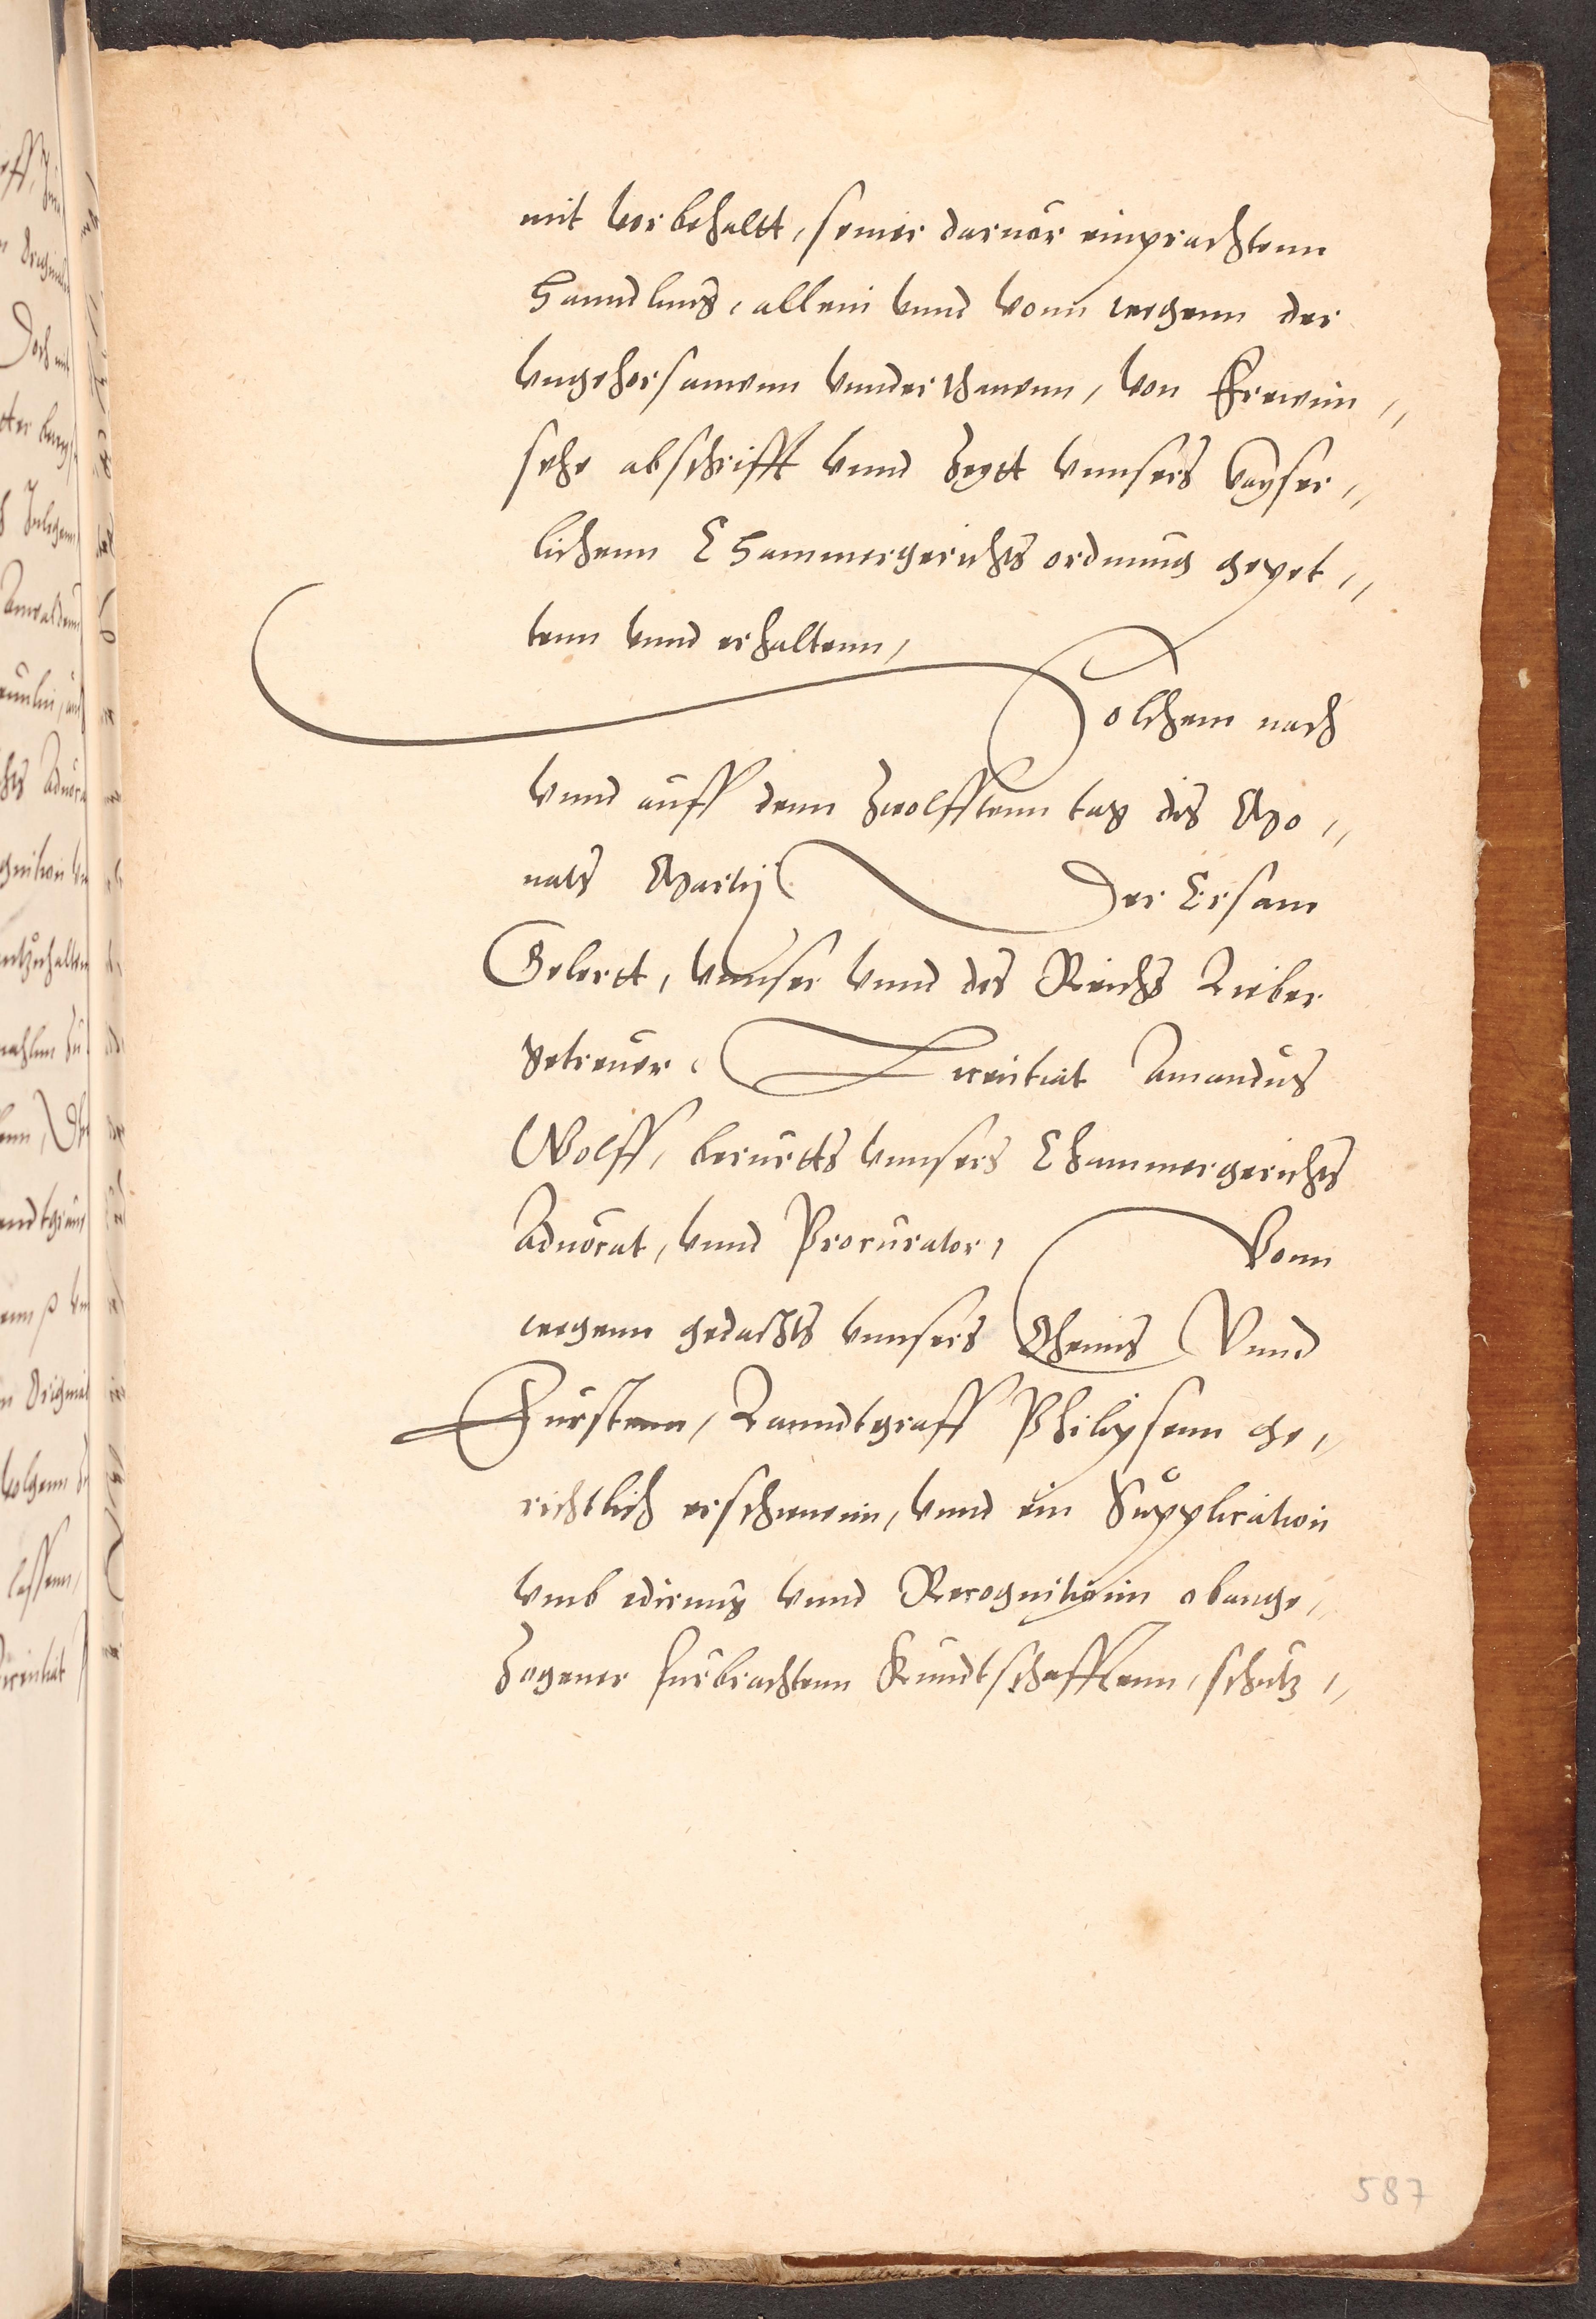 mit vorbehaltt, seiner daruor einprachtenn
Hanndlung, allein vnnd vonn wegenn der
vngehorsamenn vnnderthanenn, von
sche abschrifft vnnd Zeytt vnnsers kayser,,
lichenn Chammergerichts ordnung gepet,,
tenn vnnd erhaltenn,
Solchem nach
vnnd auff denn zwolfftenn tag dis Mo,,
nats Martij Der Ersam
Gelertt, vnnser vnnd des Reichs Lieber
getreuer, Licentiat Amandus
Wolff, berurtts vnnsers Chammergerichts
Aduocat, vnnd Procurator, Vonn
wegenn gedachts vnnsers Oheims Vnnd
Fürstenn, Lanndtgraff Philipsenn ge,,
richtlich erschienenn, vnnd ein Supplication
vmb edirung vnnd Recognitionn obange,,
Zogener furbrachtenn Kundtschafftenn, schutz,,
587